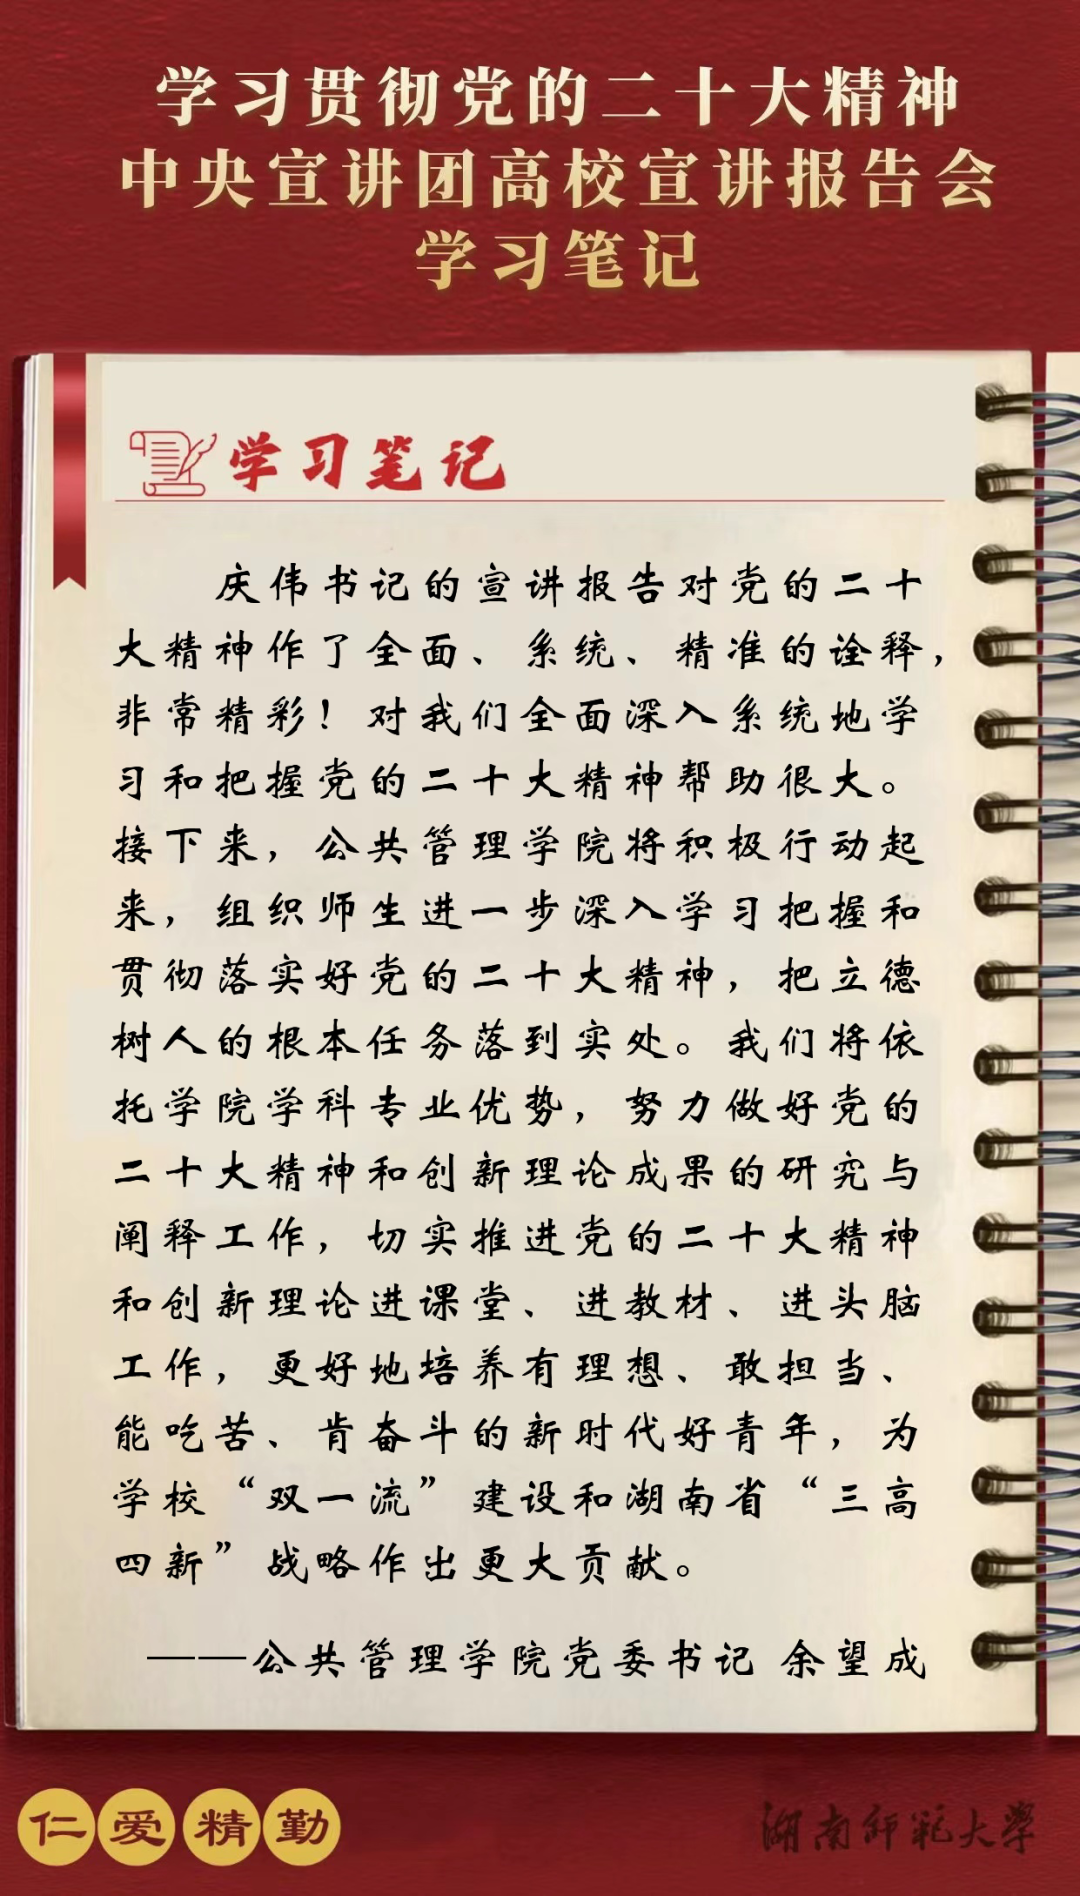 学习贯彻党的二十大精神
中央宣讲团高校宣讲报告会
学习笔记
学习笔记
庆伟书记的宣讲报告对党的二十
大精神作了全面、系统、精准的诠释，
非常精彩！对我们全面深入系统地学
习和把握党的二十大精神帮助很大。
接下来，公共管理学院将积极行动起
来，组织师生进一步深入学习把握和
贯彻落实好党的二十大精神，把立德
树人的根本任务落到实处。我们将依
托学院学科专业优势，努力做好党的
二十大精神和创新理论成果的研究与
阐释工作，切实推进党的二十大精神
和创新理论进课堂、进教材、进头脑
工作，更好地培养有理想、敢担当、
能吃苦、肯奋斗的新时代好青年，为
学校“双一流”建设和湖南省“三高
四新”战略作出更大贡献。
——公共管理学院党委书记 余望成
仁爱精勤
湖南师范大学